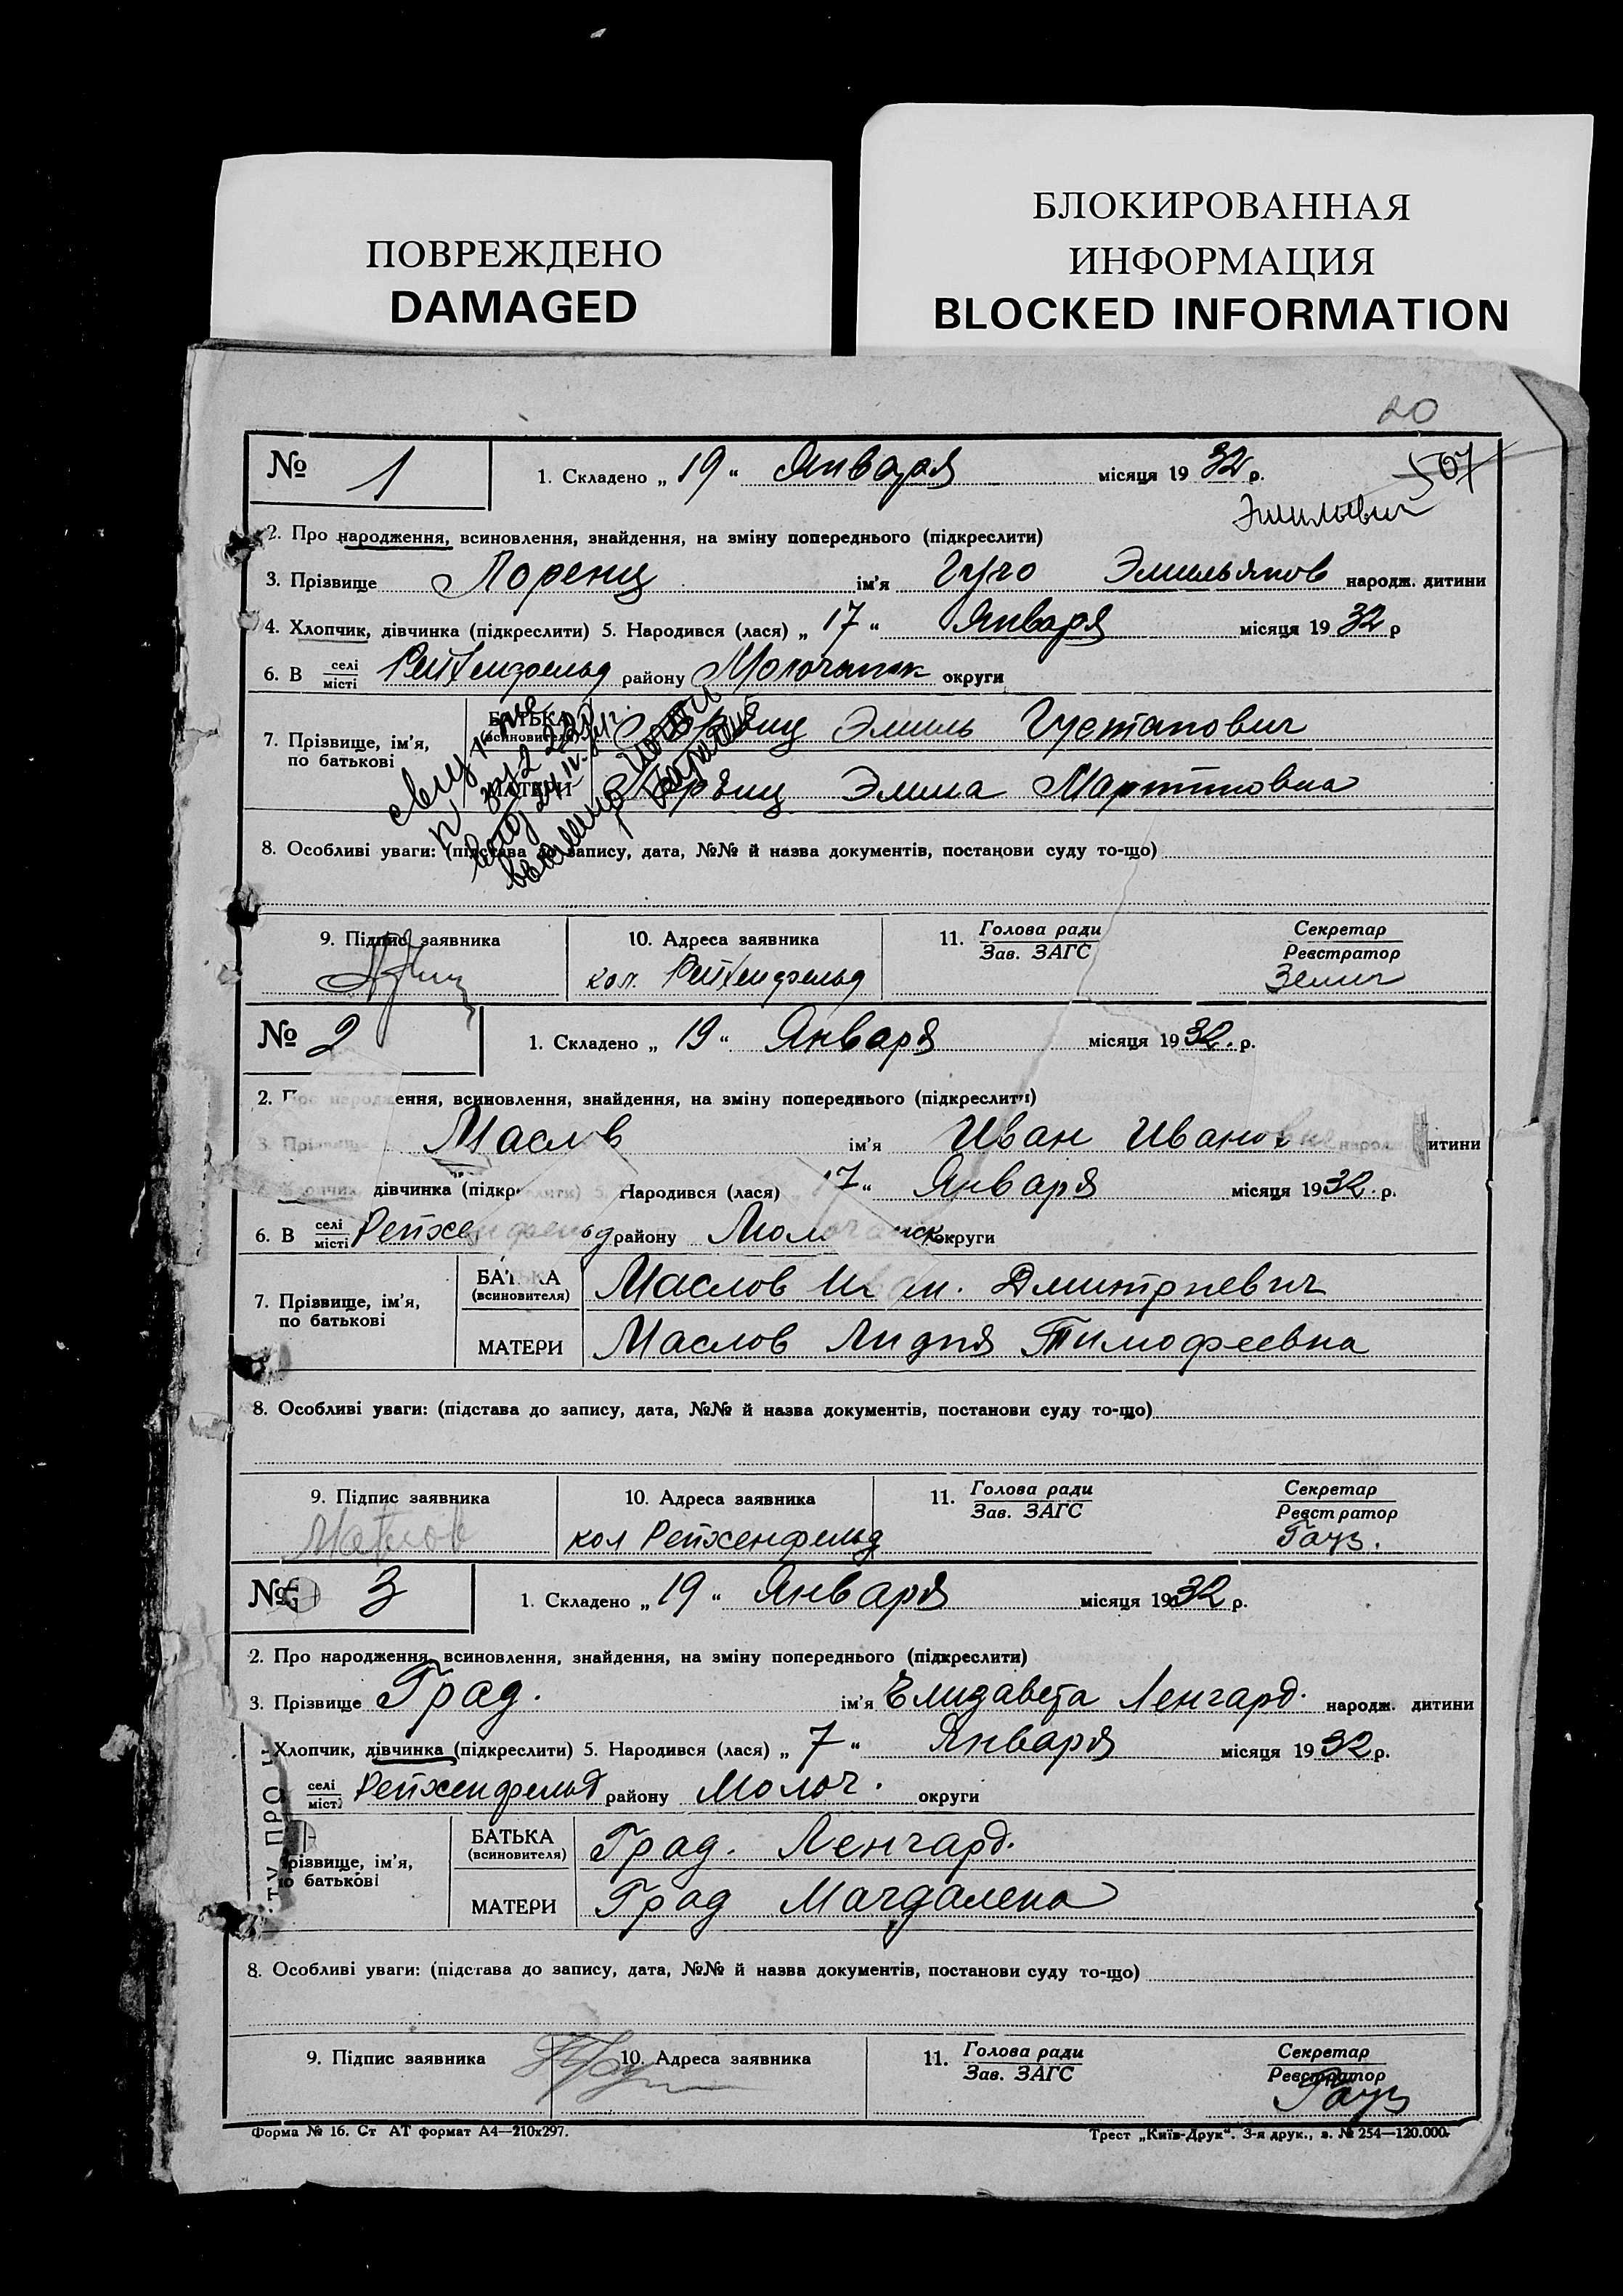 ПОВРЕЖДЕНО
DAMAGED
БЛОКИРОВАННАЯ
ИНФОРМАЦИЯ
BLOCKED INFORMATION
20
507
№ 1
1. Складено „ 19 “ Января місяця 19 32 р.
2. Про народження, всиновлення, знайдення, на зміну попереднього (підкреслити)
3. Прізвище Лоренц ім’я Гуго Эмильяпов народж. дитини
4. Хлопчик, дівчинка (підкреслити) 5. Народився (лася) „ 17 “ Января місяця 19 32 р
6. В селі місті Рейхенфельд району Молочанск округи
7. Прізвище, ім’я, по батькові
БАТЬКА (всиновителя) Эмиль Густапович
МАТЕРИ Элина Мартиновна
8. Особливі уваги: (підстава до запису, дата, №№ й назва документів, постанови суду то-що)
9. Підпис заявника
10. Адреса заявника
кол. Рейхенфельд
11. Голова ради
Зав. ЗАГС
Секретар
Реєстратор
№ 2
1. Складено „ 19 “ Января місяця 19 32. р.
2. Про народження, всиновлення, знайдення, на зміну попереднього (підкреслити)
3. Прізвище Маслов ім’я Иван Иванов народж. дитини
дівчинка (підкреслити) 5. Народився (лася) 17 “ Января місяця 19 32. р.
6. В селі місті Рейхенфельд району Молочанск округи
7. Прізвище, ім’я, по батькові
БАТЬКА (всиновителя) Маслов Дмитриевич
МАТЕРИ Маслов Лидия Тимофеевна
8. Особливі уваги: (підстава до запису, дата, №№ й назва документів, постанови суду то-що)
9. Підпис заявника
Маслов
10. Адреса заявника
кол Рейхенфельд
11. Голова ради
Зав. ЗАГС
Секретар
Реєстратор
Гауз.
№ 3
1. Складено „ 19 “ Января місяця 19 32 р.
2. Про народження, всиновлення, знайдення, на зміну попереднього (підкреслити)
3. Прізвище Град. ім’я Елизавета Ленгард. народж. дитини
Хлопчик, дівчинка (підкреслити) 5. Народився (лася) „ 7 “ Января місяця 19 32 р.
селі місті Рейхенфельд району Молоч. округи
Прізвище, ім’я, по батькові
БАТЬКА (всиновителя) Град. Ленгард.
МАТЕРИ Град Магдалена
8. Особливі уваги: (підстава до запису, дата, №№ й назва документів, постанови суду то-що)
9. Підпис заявника
10. Адреса заявника
11. Голова ради
Зав. ЗАГС
Секретар
Реєстратор
Гауз
Форма № 16. Ст АТ формат А4—210х297.
Трест „Київ-Друк“. 3-я друк., з. № 254—120.000.